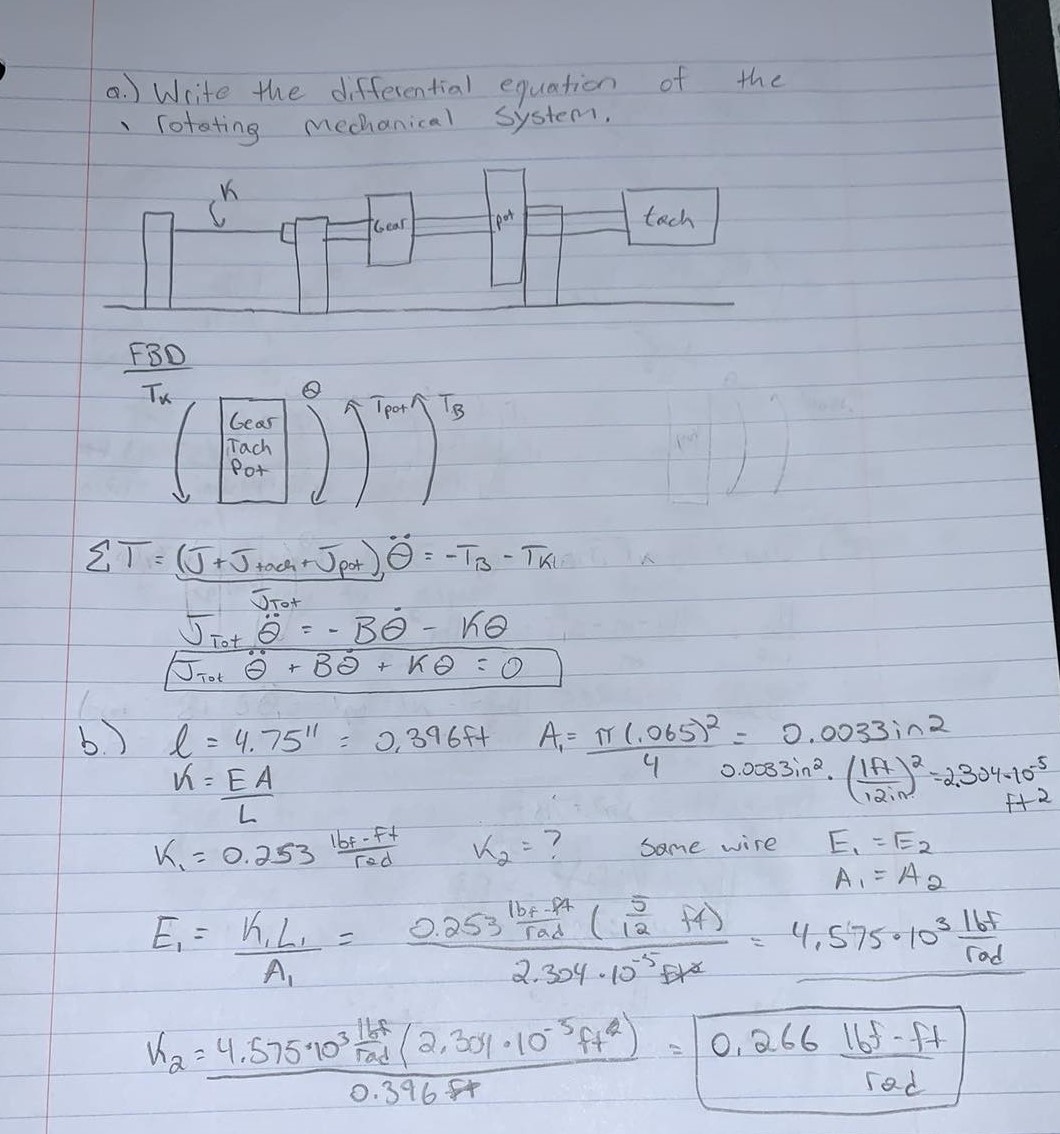 a.) Write the differential equation of the
rotating mechanical system.
K
Gear
pot
tach
FBD
Tk θ Tpot TB
Gear
Tach
Pot
ΣT = (J + Jtach + Jpot) θ̈ = -TB - TK
JTot
JTot θ̈ = - Bθ̇ - Kθ
JTot θ̈ + Bθ̇ + Kθ = 0
b.) l = 4.75" = 0.396ft A₁ = π(.065)²/4 = 0.0033in2
K = EA/L 0.0033in² · (1ft/12in)² = 2.304·10⁻⁵ ft2
K₁ = 0.253 lbf-ft/rad K₂ = ? same wire E₁ = E₂
A₁ = A₂
E₁ = K₁L₁/A₁ = 0.253 lbf-ft/rad (5/12 ft)/2.304·10⁻⁵ ft2 = 4.575·10³ lbf/rad
K₂ = 4.575·10³ lbf/rad (2.304·10⁻⁵ft²)/0.396 ft = 0.266 lbf-ft/rad